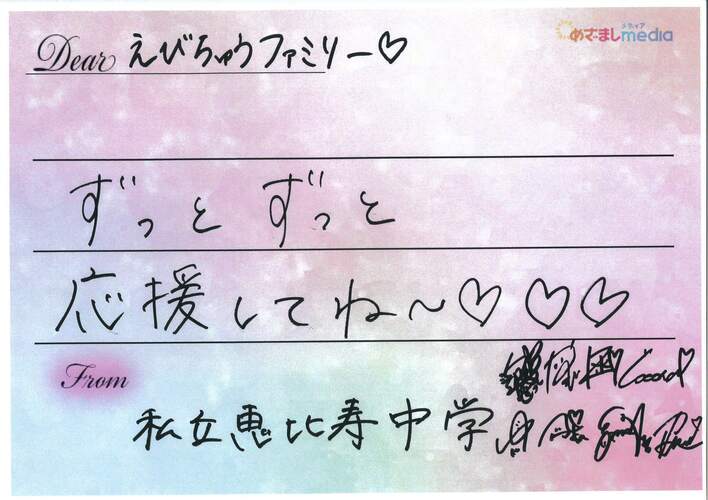 めざましmedia
メディア
Dear えびちゅうファミリー♡
ずっと ずっと
応援してね〜♡♡♡
From
私立恵比寿中学